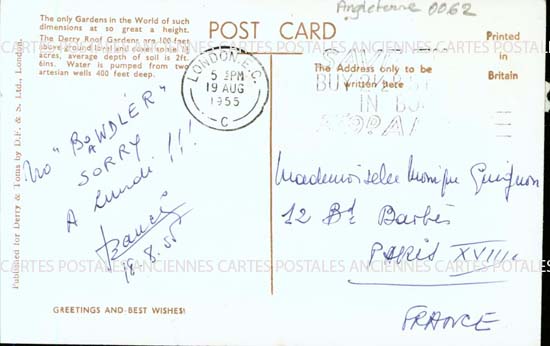 The only Gardens in the World of such
dimensions at so great a height.
The Derry Roof Gardens are 100 feet
above ground level and cover some 1½
acres, average depth of soil is 2ft.
6ins. Water is pumped from two
artesian wells 400 feet deep.
POST CARD
Angleterre 0062
Printed
in
Britain
The Address only to be
written here
LONDON. E.C.
5 PM
19 AUG
1955
C
BUY
IN
Published for Derry & Toms by D.F. & S. Ltd., London.
No "BOWDLER"
SORRY
A lundi !!!
Francis
18.8.55
Mademoiselle Monique Guignon
12 Bd Barbès
PARIS XVIII
FRANCE
CARTES POSTALES ANCIENNES CARTES POSTALES ANCIENNES CARTES POSTALES
GREETINGS AND BEST WISHES!